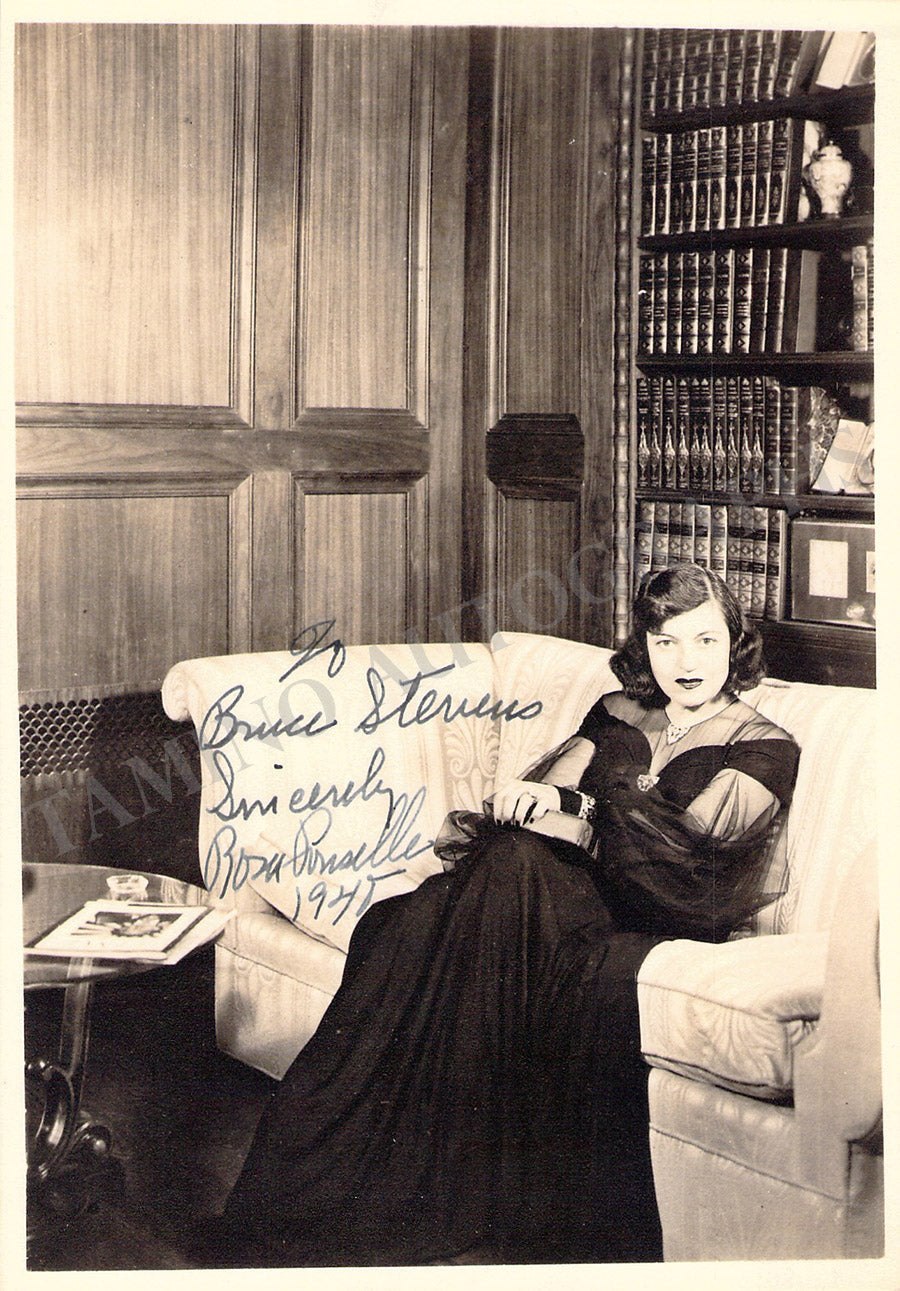 To
Bruce Stevens
Sincerely
Rosa Ponselle
1945
TAMINO AUTOGRAPHS